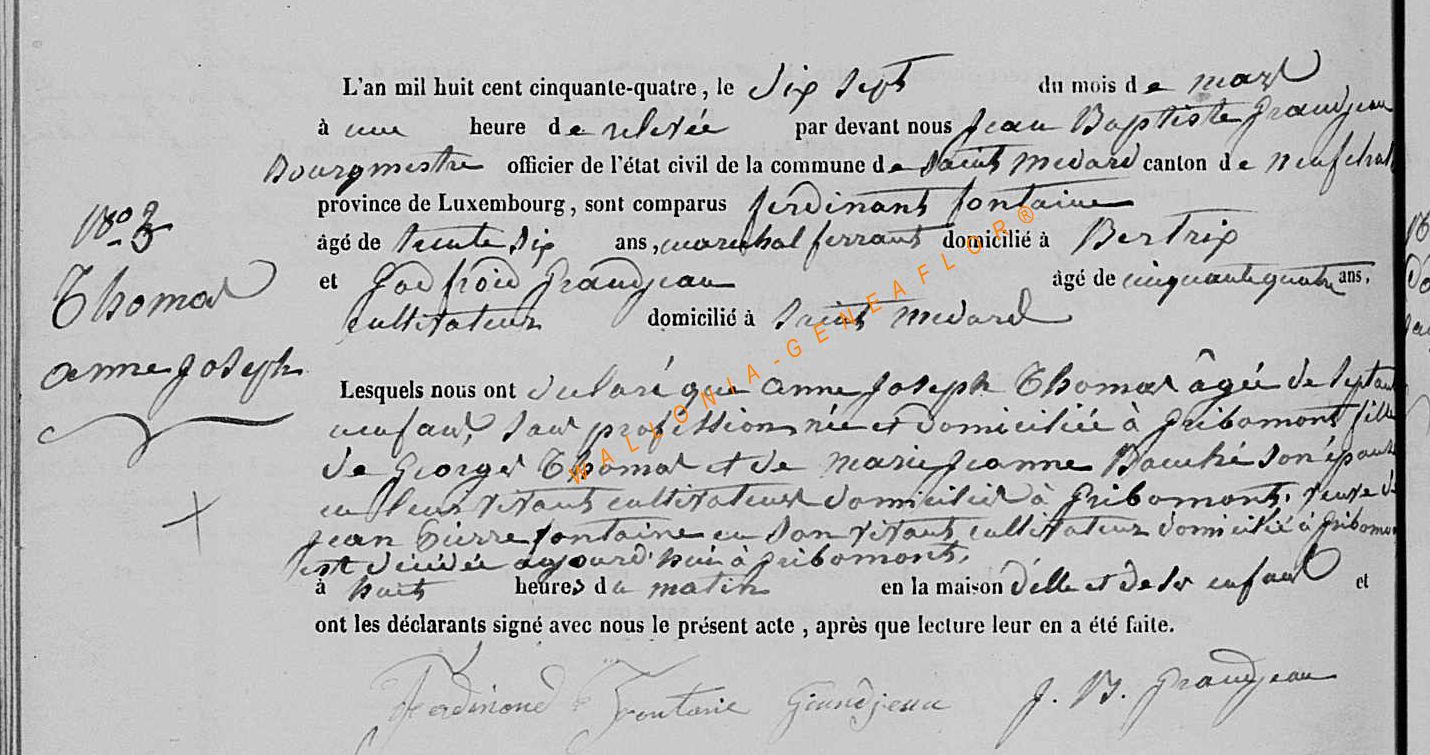 L'an mil huit cent cinquante-quatre, le dix sept du mois de mars
à une heure de relevée par devant nous Jean Baptiste Grandjean
Bourgmestre officier de l'état civil de la commune de Saint Medard canton de neufchat
province de Luxembourg, sont comparus ferdinant fontaine
âgé de trente six ans, marechal ferrant domicilié à Bertrix
et Godfroid Grandjean âgé de cinquante quatre ans,
cultivateur domicilié à Saint medard
N° 3
Thomas
anne Joseph
Lesquels nous ont declaré que anne Joseph Thomas âgée de septante
neuf ans, sans profession, née et domiciliée à Gribomont fille
de Georges Thomas et de marie Jeanne Bauché son épouse
en leur vivant cultivateurs domiciliés à Gribomont, veuve de
jean Pierre fontaine en son vivant cultivateur domicilié à gribomon
est décédée aujourd'hui à gribomont,
à huit heures du matin en la maison d'elle et de ses enfans et
ont les déclarants signé avec nous le présent acte, après que lecture leur en a été faite.
Ferdinand Fontaine Grandjean J. B. Grandjean
WALLONIA-GENEAFLOR®